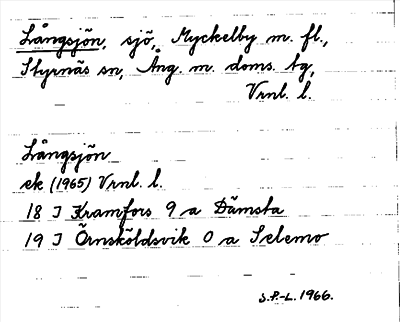 Långsjön, sjö, Myckelby m. fl.,
Styrnäs sn, Ång. m. doms. tg,
Vrnl. l.
Långsjön
ek (1965) Vrnl. l.
18 J Kramfors 9 a Dämsta
19 J Örnsköldsvik 0 a Selemo
S.P.-L. 1966.